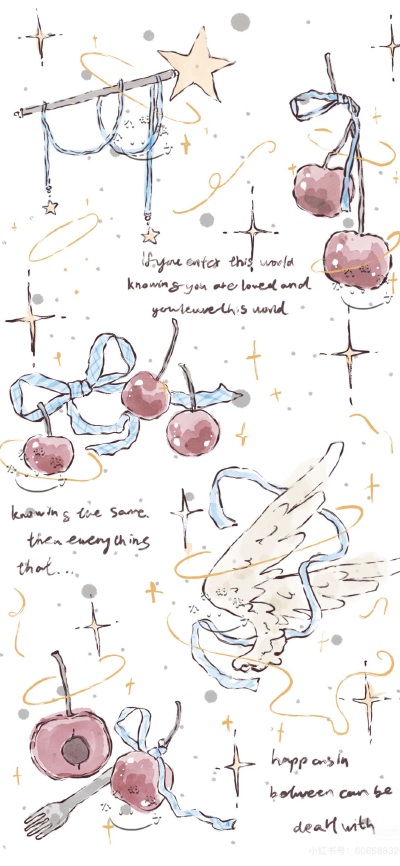 If you enter this world
knowing you are loved and
you leave this world
knowing the same.
then everything
that...
happens in
between can be
dealt with
小红书号：60868832